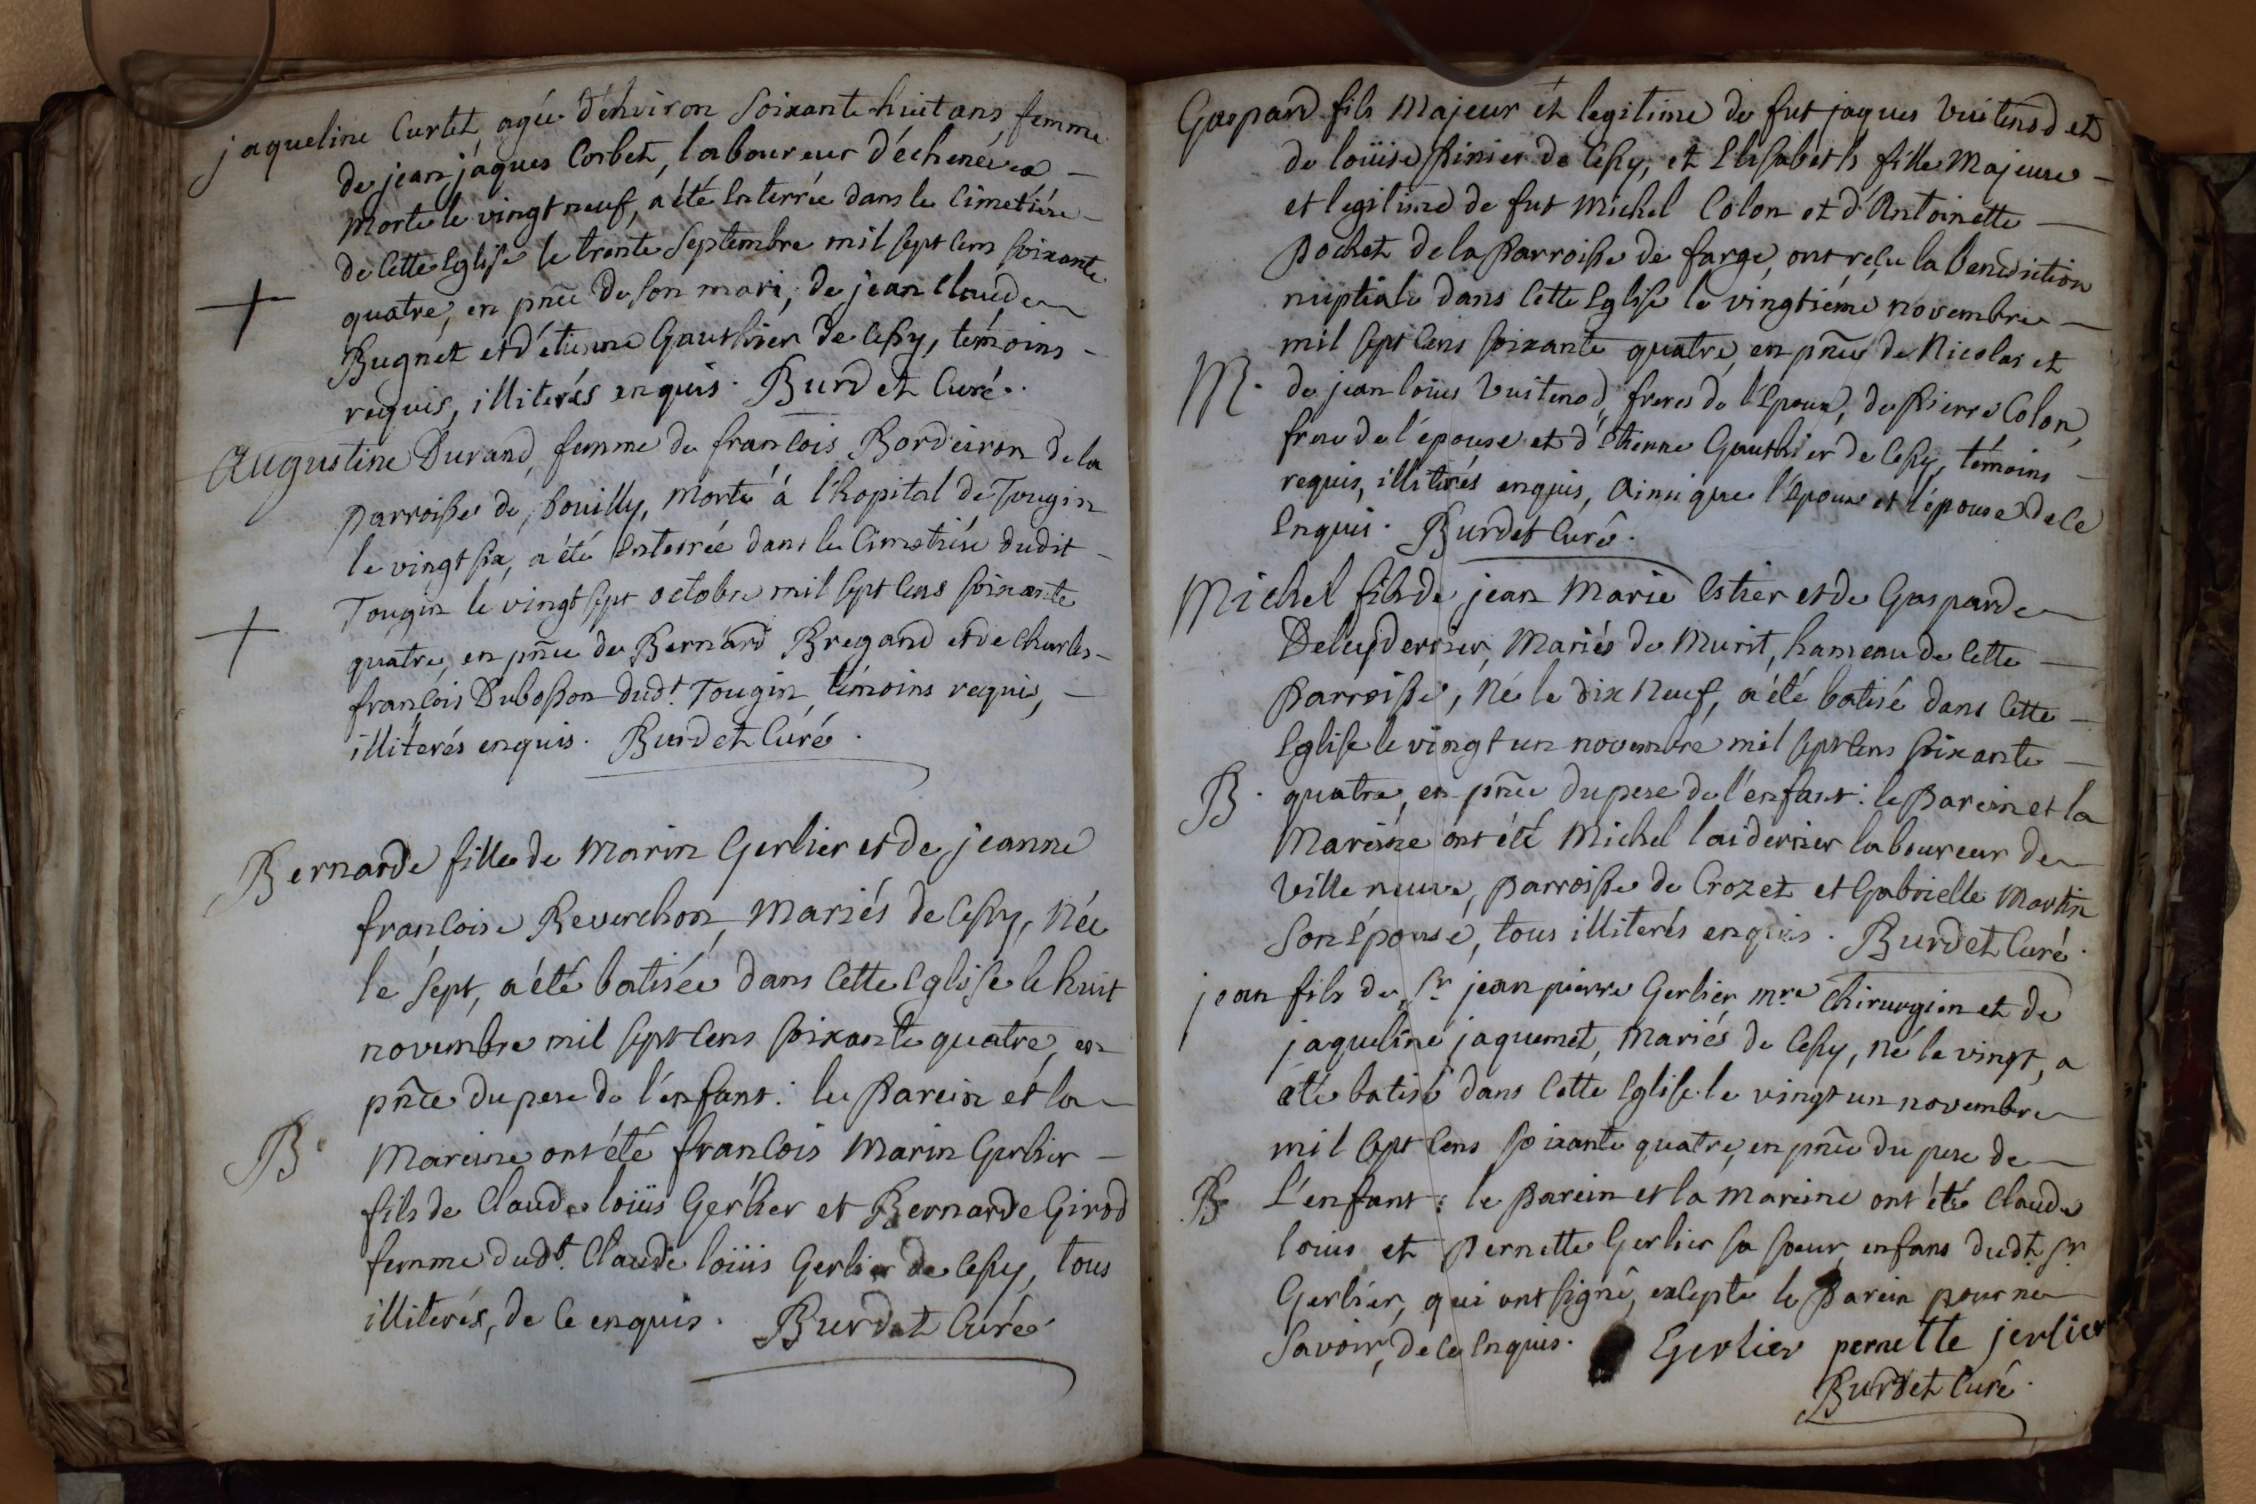 jaqueline Curtet, agée d'environ soixante huit ans, femme
de jean jaques Corbet, laboureur d'échenéve
morte le vingt neuf, a été enterrée dans le Cimetière
de Cette Eglise le trente Septembre mil sept Cens soixante
+
quatre, en pñce de son mari, de jean Claude
Bugnet et d'étienne Gauthier de Cessy, témoins
requis, illiterés enquis. Burdet Curé.
Augustine Durand, femme de francois Bordeiron de la
parroisse de pouilly, morte à l'hopital de Tougin
le vingt six, a été enterrée dans le Cimetiére dudit
Tougin le vingt sept octobre mil sept Cens soixante
+
quatre, en pñce de Bernard Bregand et de Charles
francois Dubosson dud.t Tougin, témoins requis,
illiterés enquis. Burdet Curé.
Bernarde fille de Marin Gerlier et de jeanne
francoise Reverchon, Mariés de Cessy, Née
le sept, a été batisée dans Cette Eglise le huit
novembre mil sept Cens soixante quatre, en
pñce du pere de l'enfant: le Parein et la
B.
Mareine ont été francois Marin Gerlier
fils de Claude loüis Gerlier et Bernarde Girod
femme dud.t Claude loüis Gerlier de Cessy, tous
illiterés, de Ce enquis. Burdet Curé.
Gaspard fils Majeur et legitime de fut jaques Vuitenod et
de loüise Pinier de Cessy, et Elisabeth fille Majeure
et legitime de fut Michel Colon et d'Antoinette
Pochet de la Parroisse de farge, ont reçu la benediction
nuptiale dans Cette Eglise le vingtiéme novembre
mil sept Cens soixante quatre, en pñce de Nicolas et
M.
de jean loüis Vuitenod, freres de l'Epoux, de Pierre Colon,
frere de l'épouse et d'Etienne Gauthier de Cessy, témoins
requis, illiterés enquis, Ainsi que l'Epoux et l'épouse de Ce
Enquis. Burdet Curé.
Michel fils de jean Marie Estier et de Gasparde
Deleyderrier, Mariés de Murit, hameau de Cette
Parroisse, Né le dix Neuf, a été batisé dans Cette
Eglise le vingt un novembre mil sept Cens soixante
B.
quatre, en pñce du pere de l'enfant: le Parein et la
Mareine ont été Michel laiderrier laboureur de
Ville neuve, parroisse de Crozet et Gabrielle Martin
Son Epouse, tous illiterés enquis. Burdet Curé.
jean fils de Sr jean pierre Gerlier mre Chirurgien et de
jaqueline jaquemet, Mariés de Cessy, né le vingt, a
été batisé dans Cette Eglise le vingt un novembre
mil sept Cens soixante quatre, en pñce du pere de
B
L'enfant: le Parein et la mareine ont été Claude
louis et Pernette Gerlier sa soeur, enfans dudt Sr
Gerlier, qui ont signé, excepté le Parein pour ne
Savoir, de Ce Enquis. Gerlier pernette jerlier
Burdet Curé.